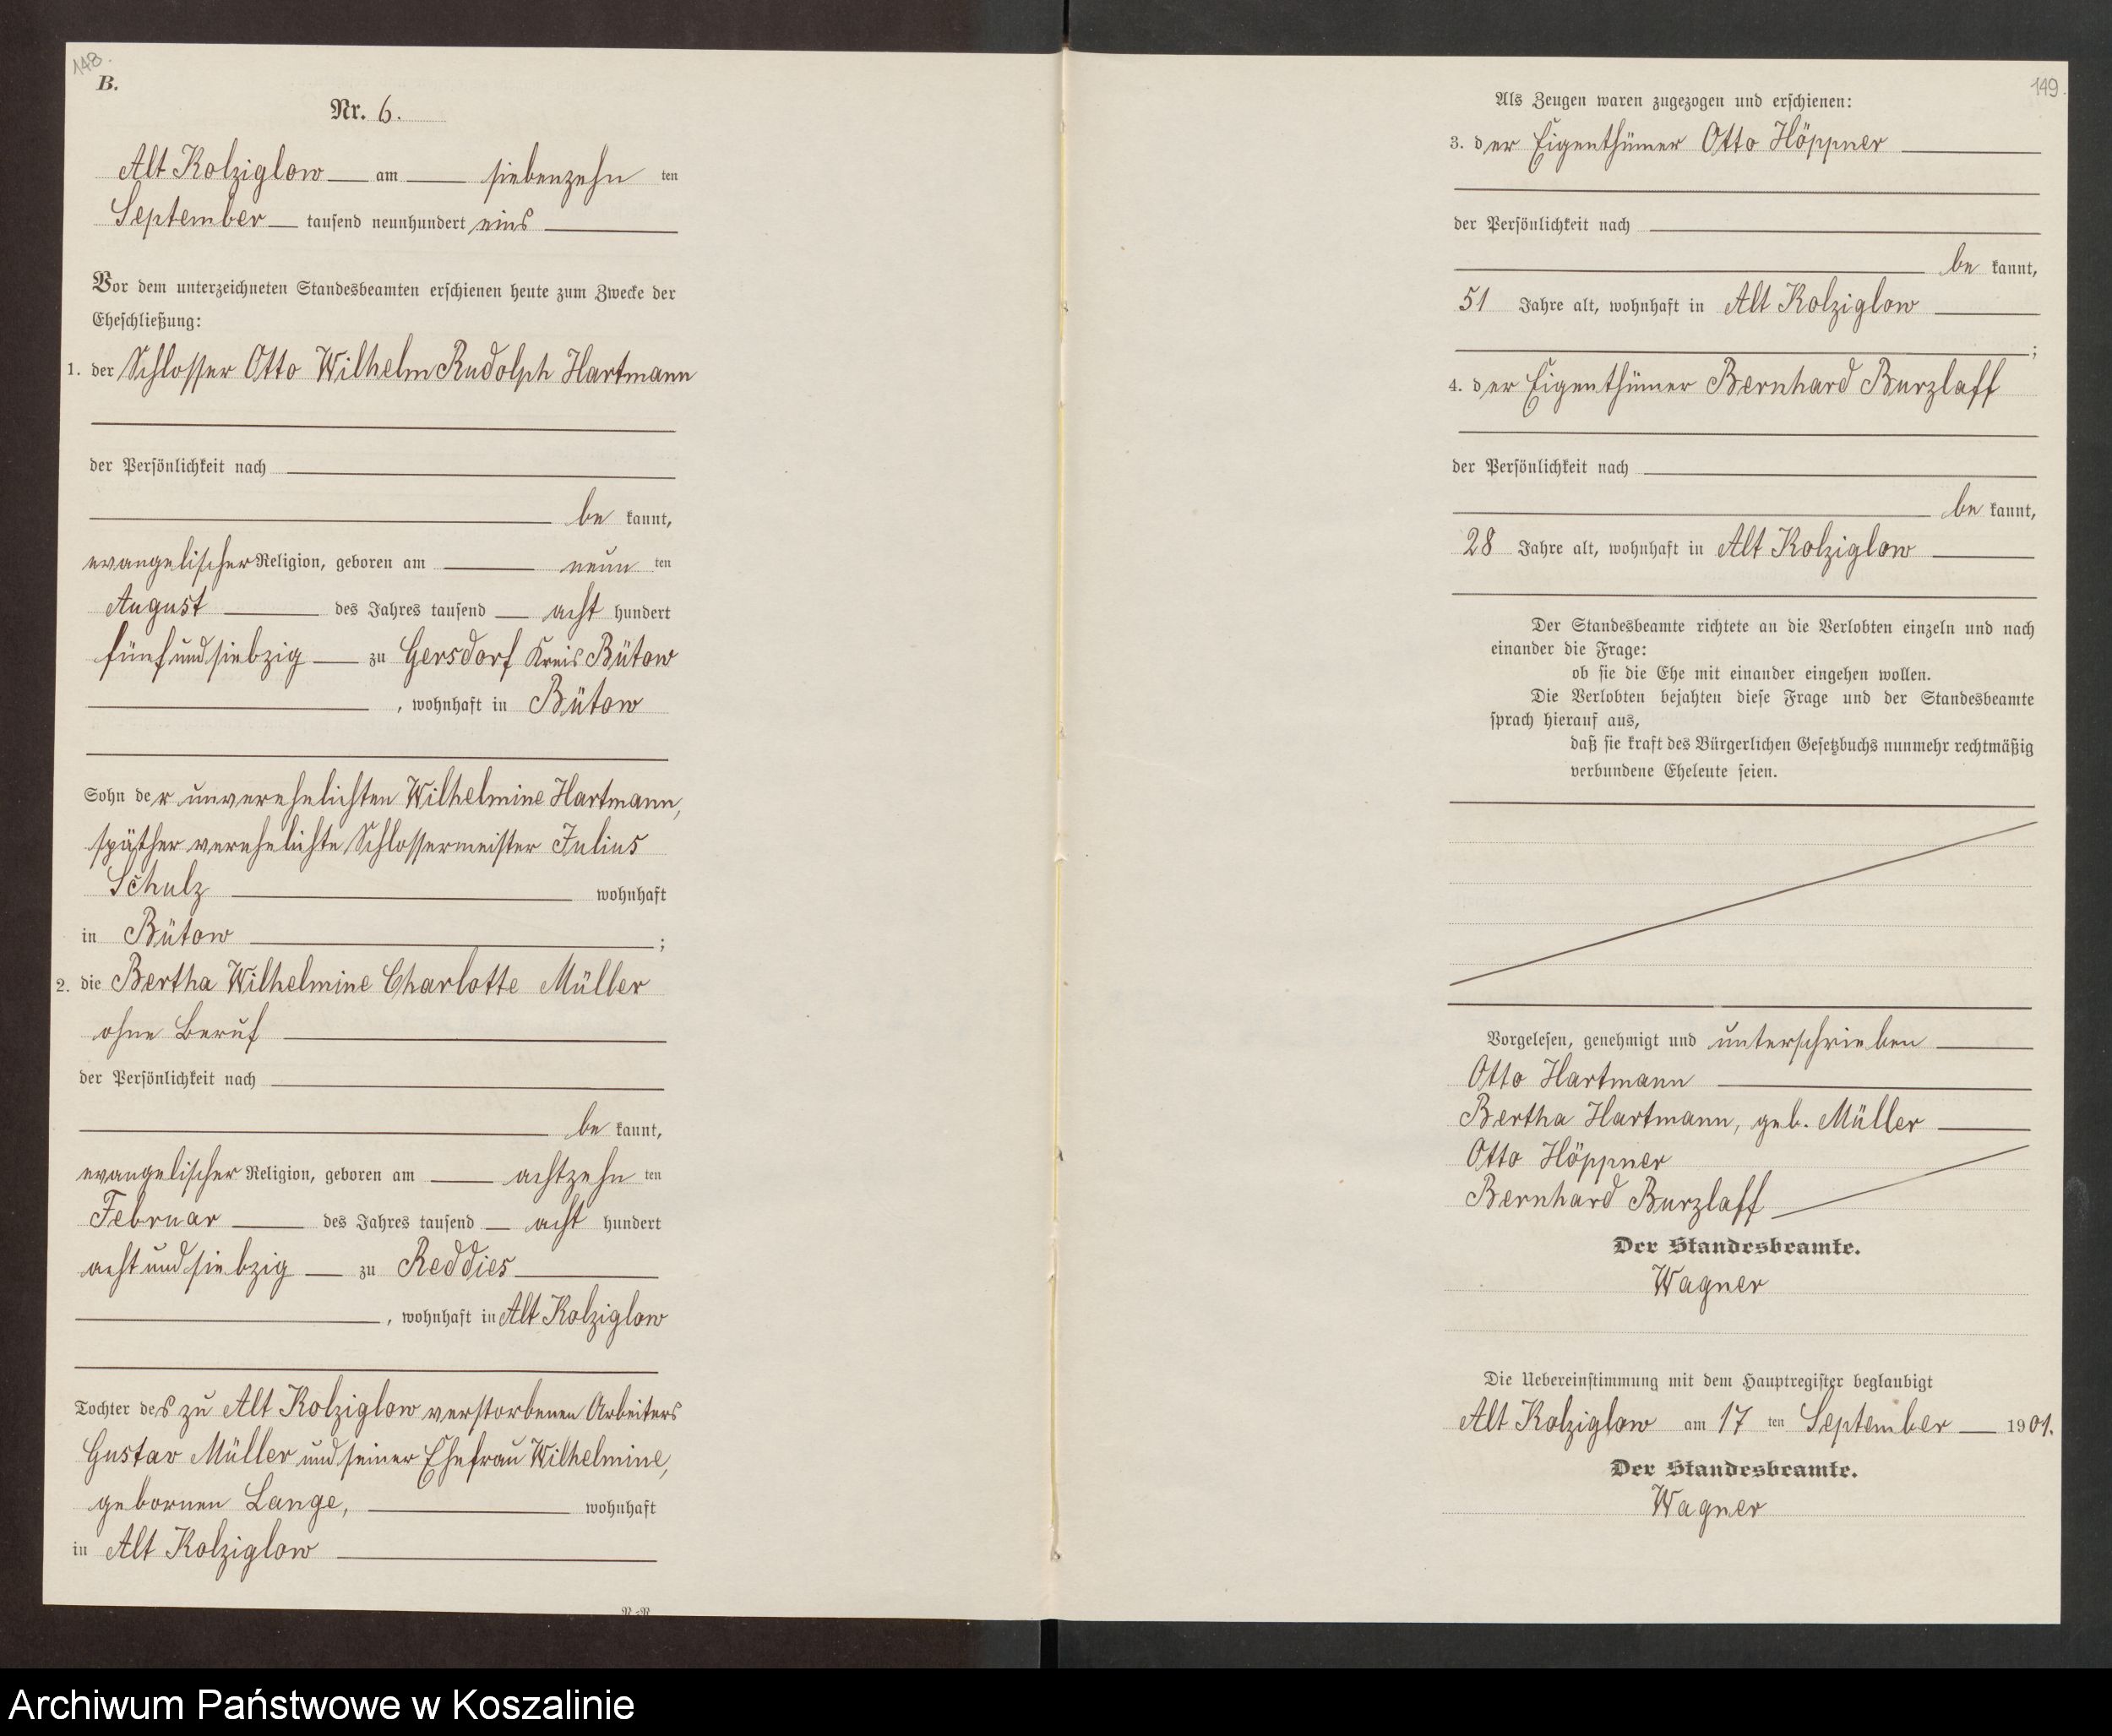 148.
B.
Nr. 6.
Alt Kolziglow am siebenzehn ten
September tausend neunhundert eins
Vor dem unterzeichneten Standesbeamten erschienen heute zum Zwecke der
Eheschließung:
1. der Schlosser Otto Wilhelm Rudolph Hartmann
der Persönlichkeit nach
be kannt,
evangelischer Religion, geboren am neun ten
August des Jahres tausend acht hundert
fünf und siebzig zu Gersdorf Kreis Bütow
, wohnhaft in Bütow
Sohn der unverehelichten Wilhelmine Hartmann,
späther verehelichte Schlossermeister Julius
Schulz wohnhaft
in Bütow ;
2. die Bertha Wilhelmine Charlotte Müller
ohne Beruf
der Persönlichkeit nach
be kannt,
evangelischer Religion, geboren am achtzehn ten
Februar des Jahres tausend acht hundert
acht und siebzig zu Reddies
, wohnhaft in Alt Kolziglow
Tochter des zu Alt Kolziglow verstorbenen Arbeiters
Gustav Müller und seiner Ehefrau Wilhelmine,
gebornen Lange, wohnhaft
in Alt Kolziglow
149.
Als Zeugen waren zugezogen und erschienen:
3. der Eigenthümer Otto Höppner
der Persönlichkeit nach
be kannt,
51 Jahre alt, wohnhaft in Alt Kolziglow
;
4. der Eigenthümer Bernhard Burzlaff
der Persönlichkeit nach
be kannt,
28 Jahre alt, wohnhaft in Alt Kolziglow
Der Standesbeamte richtete an die Verlobten einzeln und nach
einander die Frage:
ob sie die Ehe mit einander eingehen wollen.
Die Verlobten bejahten diese Frage und der Standesbeamte
sprach hierauf aus,
daß sie kraft des Bürgerlichen Gesetzbuchs nunmehr rechtmäßig
verbundene Eheleute seien.
Vorgelesen, genehmigt und unterschrieben
Otto Hartmann
Bertha Hartmann, geb. Müller
Otto Höppner
Bernhard Burzlaff
Der Standesbeamte.
Wagner
Die Uebereinstimmung mit dem Hauptregister beglaubigt
Alt Kolziglow am 17 ten September 1901.
Der Standesbeamte.
Wagner
Archiwum Państwowe w Koszalinie